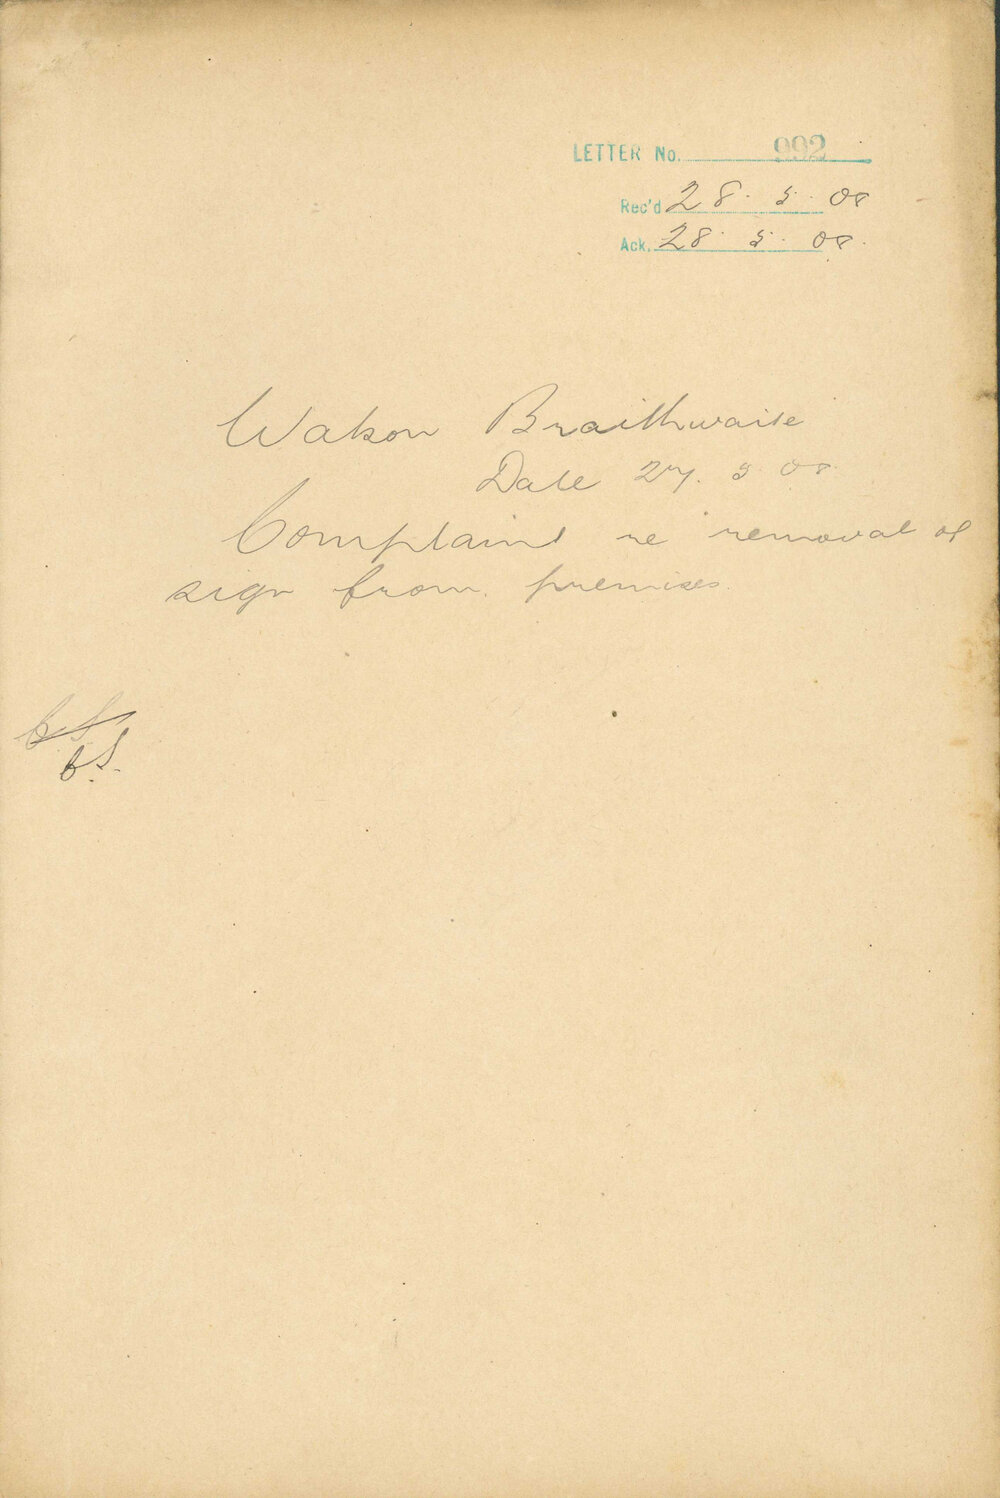 LETTER No. 992
Rec'd 28. 5. 08
Ack. 28. 5. 08.
Watson Braithwaite
Date 27. 5. 08.
Complaint re removal of
sign from premises.